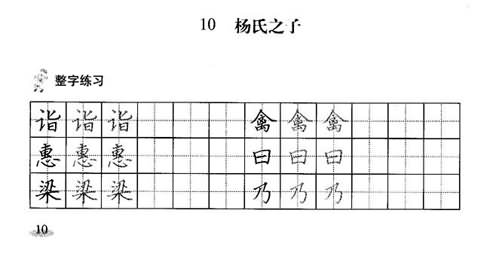 10 杨氏之子
整字练习
诣 诣 诣 禽 禽 禽
惠 惠 惠 曰 曰 曰
梁 梁 梁 乃 乃 乃
10